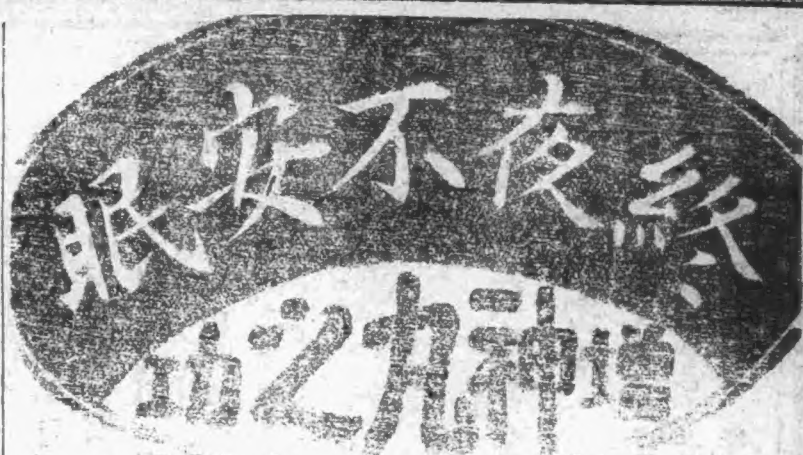 終夜不安眠
增神丸之功